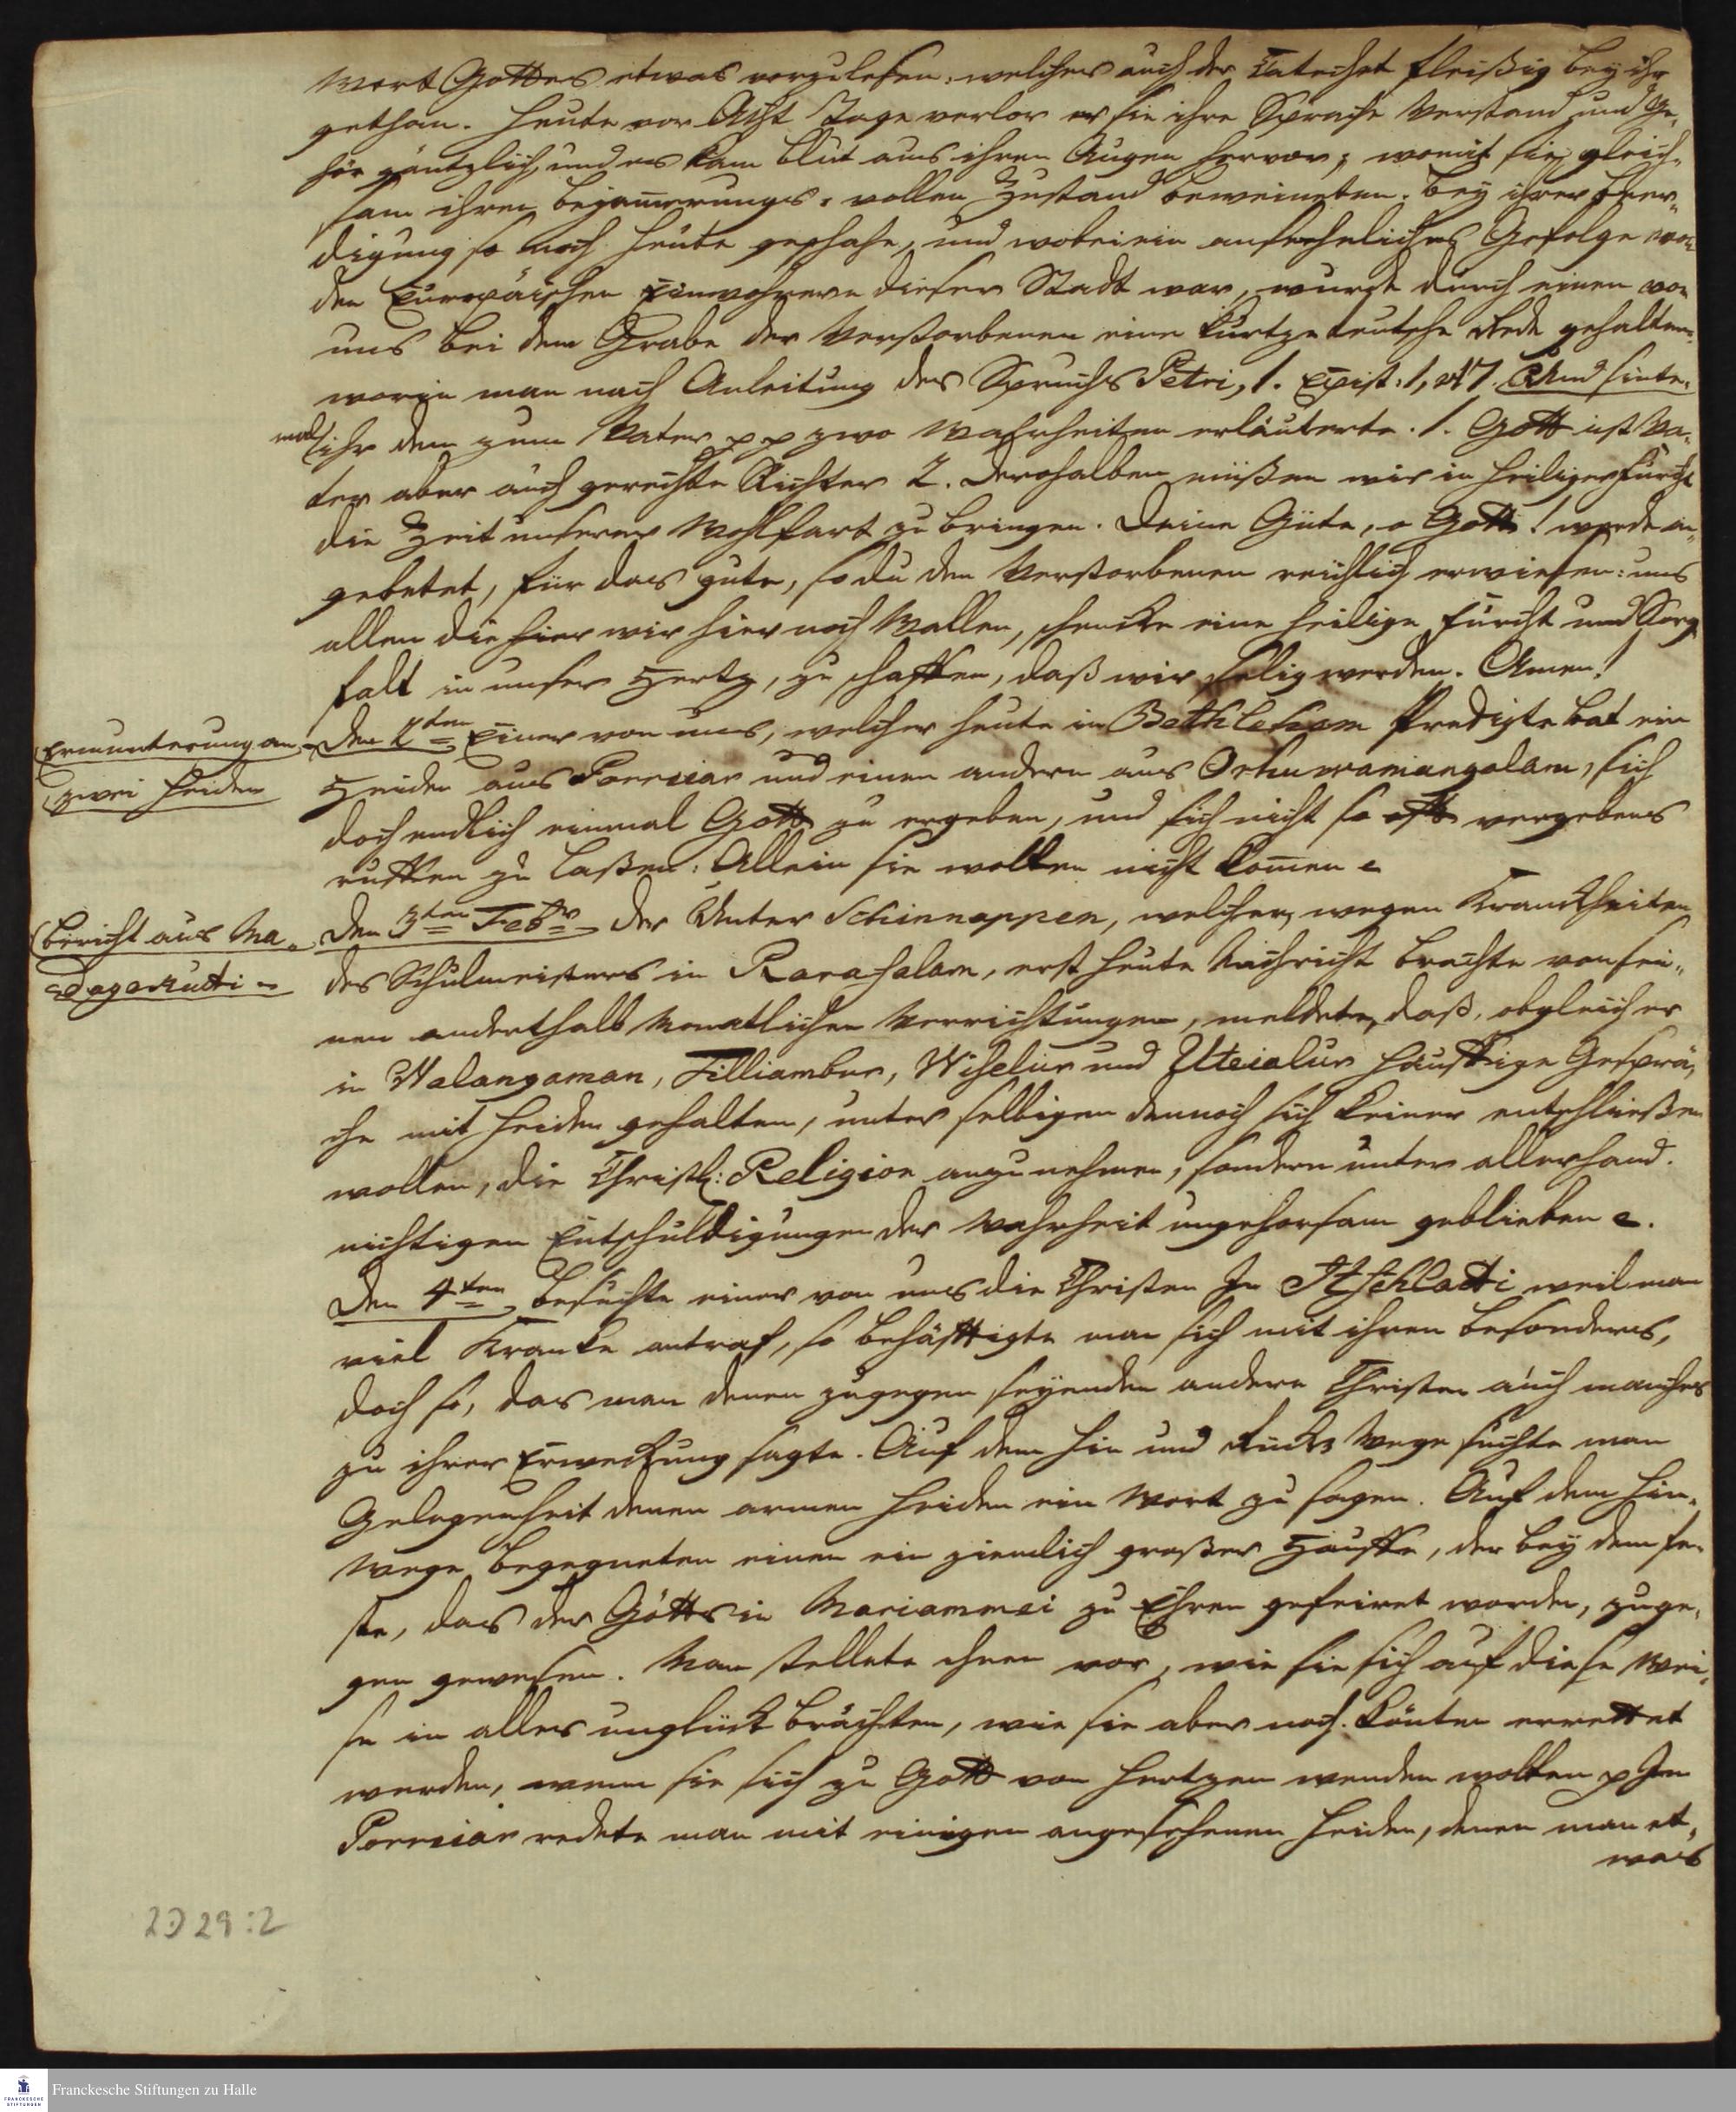 Wort Gottes etwas vorzulesen: welches auch der Catechet fleißig bey ihr
gethan. Heute vor Acht Tage verlor er sie ihre Sprache Verstand und Ge-
hör gäntzlich, und es kam blut aus ihren Augen hervor; womit sie gleich-
sam ihren bejam̅erungs-vollen Zustand beweineten. Bey ihrer Beer-
digung so noch heute geschahe, und wobei ein ansehnliches Gefolge von
den Europäischen Einwohnern dieser Stadt war, wurde durch einen von
uns bei dem Grabe der Verstorbenen eine kurtze teutsche Rede gehalten
worin man nach Anleitung des Spruchs Petri, 1. Epist: 1, 17. Und sinte-
mal ihr den zum Vater pp zwo Wahrheiten erläuterte. 1. Gott ist Va-
ter aber auch gerechte Richter 2. Derohalben müßen wir in heiliger Furcht
die Zeit unserer Wohlfart zu bringen. Deine Güte, o Gott! werde an-
gebetet, für das gute, so du den Verstorbenen reichlich erwiesen: uns
allen die hier wir hier noch Wallen, schencke eine heilige Furcht und Sorg
falt in unser Hertz, zu schaffen, daß wir selig werden. Amen!
Ermunterung an
zwei Heiden
Den 2ten Einer von uns, welcher heute in Bethlehem Predigte bat ein
Heiden aus Porreiar und einen andern aus Orhuwamangalam, sich
doch endlich einmal Gott zu ergeben, und sich nicht so oft vergebens
ruffen zu laßen: Allein sie wolten nicht kom̅en
Bericht aus Ma-
dagekutti
Den 3ten Febr der Unter Schinnappen, welcher, wegen Kranckheiten
des Schulmeisters in Rarasalam, erst heute Nachricht brachte von sei-
nen anderthalb Monatlichen Verrichtungen, meldete, daß, obgleich er
in Walangaman, Filliambur, Wiselur und Uteialur häuffige Gesprä-
che mit Heiden gehalten, unter selbigen dennoch sich keiner entschließen
wollen, die Christl: Religion anzunehmen, sondern unter allerhand
nichtigen Entschuldigungen der Wahrheit ungehorsam geblieben.
Den 4ten besuchte einer von uns die Christen Jn Itschladi weil man
viel Krancke antraf, so beschäftigte man sich mit ihnen besonders,
doch so, das man denen zugegen seyenden andern Christen auch manches
zu ihrer Erweckung sagte. Auf dem hin und Rück Wege suchte man
Gelegenheit denen armen Heiden ein Wort zu sagen. Auf dem Hin-
wege begegneten einen ein ziemlich großer Hauffe, der bey dem Fe-
ste, das der Göttin Mariammei zu Ehren gefeiret worden, zuge-
gen gewesen. Man stellete ihnen vor, wie sie sich auf diese Wei-
se in alles unglück brächten, wie sie aber noch könten errettet
werden, wenn sie sich zu Gott von Hertzen wenden wolten p Jn
Porreiar redete man mit einigen angesehenen Heiden, denen man et-
was
2D29:2
Franckesche Stiftungen zu Halle